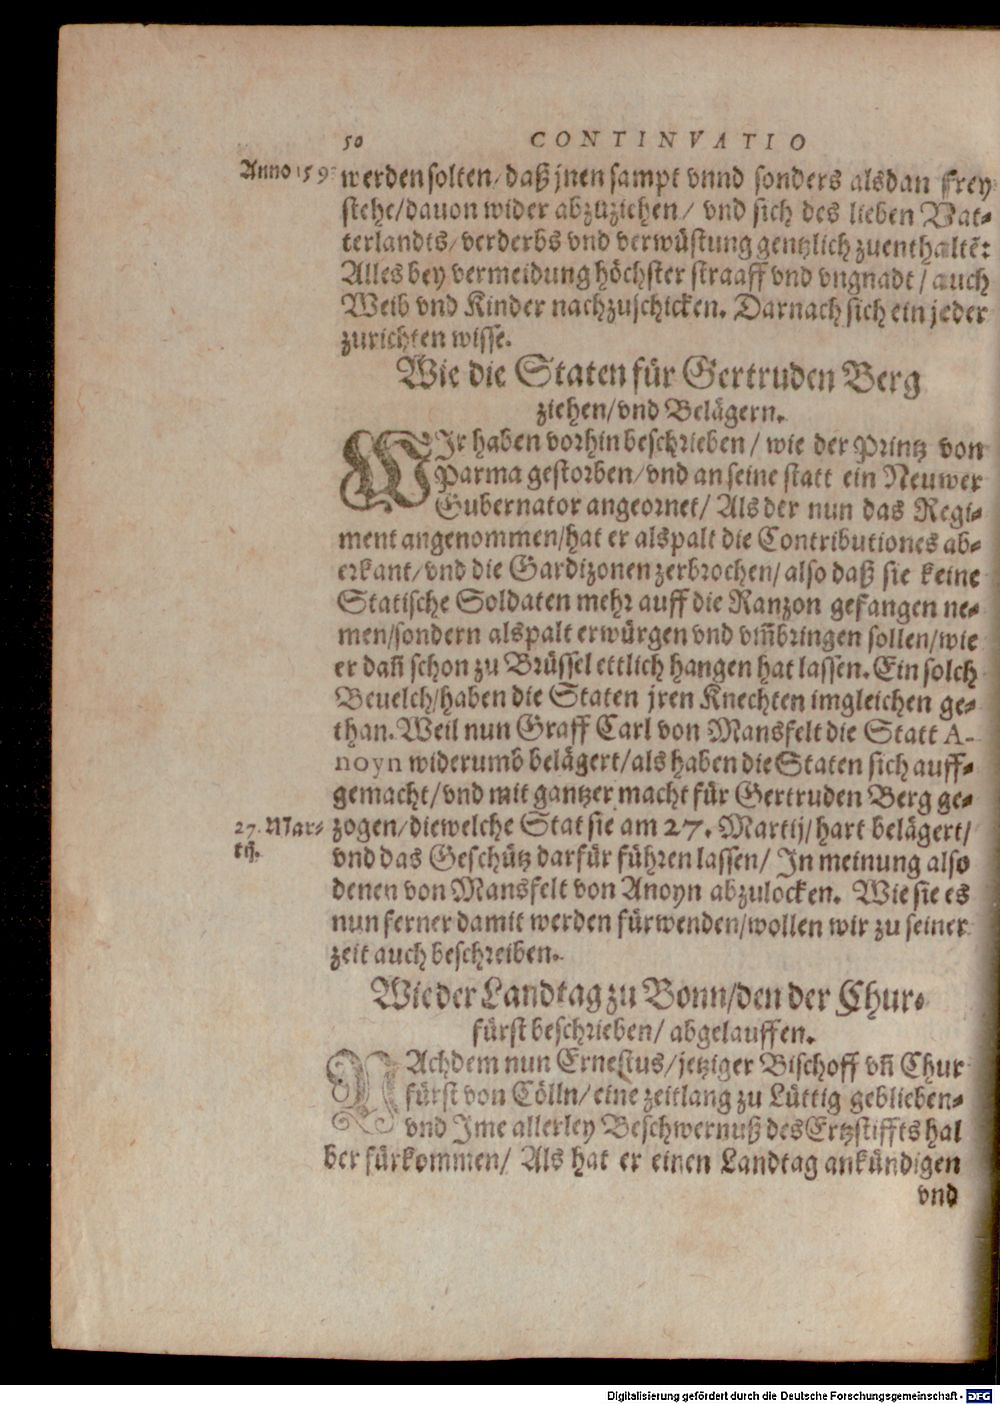 50 CONTINVATIO
Anno 159
werden solten/ daß jnen sampt vnnd sonders alsdan frey
stehe/dauon wider abzuziehen/ vnd sich des lieben Vat-
terlandts/verderbs vnd verwüstung gentzlich zuenthaltẽ:
Alles bey vermeidung höchster straaff vnd vngnadt/ auch
Weib vnd Kinder nachzuschicken. Darnach sich ein jeder
zurichten wisse.
Wie die Staten für Gertruden Berg
ziehen/vnd Belägern.
WJr haben vorhin beschrieben/ wie der Printz von
Parma gestorben/vnd an seine statt ein Neuwer
Gubernator angeornet/ Als der nun das Regi-
ment angenommen/hat er alspalt die Contributiones ab-
erkant/vnd die Gardizonen zerbrochen/also daß sie keine
Statische Soldaten mehr auff die Ranzon gefangen ne-
men/sondern alspalt erwürgen vnd vm̃bringen sollen/wie
er dañ schon zu Brüssel ettlich hangen hat lassen. Ein solch
Beuelch/haben die Staten jren Knechten imgleichen ge-
than. Weil nun Graff Carl von Mansfelt die Statt A-
noyn widerumb belägert/als haben die Staten sich auff-
gemacht/vnd mit gantzer macht für Gertruden Berg ge-
27. Mar-
tij.
zogen/diewelche Stat sie am 27. Martij/hart belägert/
vnd das Geschütz darfür führen lassen/ Jn meinung also
denen von Mansfelt von Anoyn abzulocken. Wie sie es
nun ferner damit werden fürwenden/wollen wir zu seiner
zeit auch beschreiben.
Wie der Landtag zu Bonn/den der Chur-
fürst beschrieben/ abgelauffen.
NAchdem nun Ernestus/jetziger Bischoff vñ Chur
fürst von Cölln/eine zeitlang zu Lüttig geblieben-
vnd Jme allerley Beschwernuß des Ertzstiffts hal
ber fürkommen/ Als hat er einen Landtag ankündigen
vnd
Digitalisierung gefördert durch die Deutsche Forschungsgemeinschaft - DFG